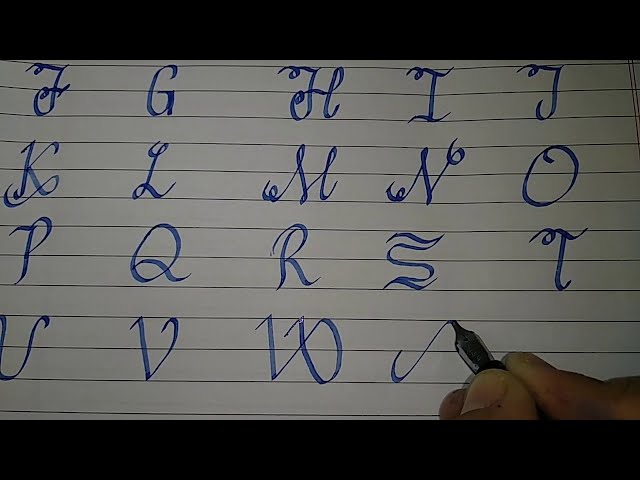 F G H I J
K L M N O
P Q R S T
U V W